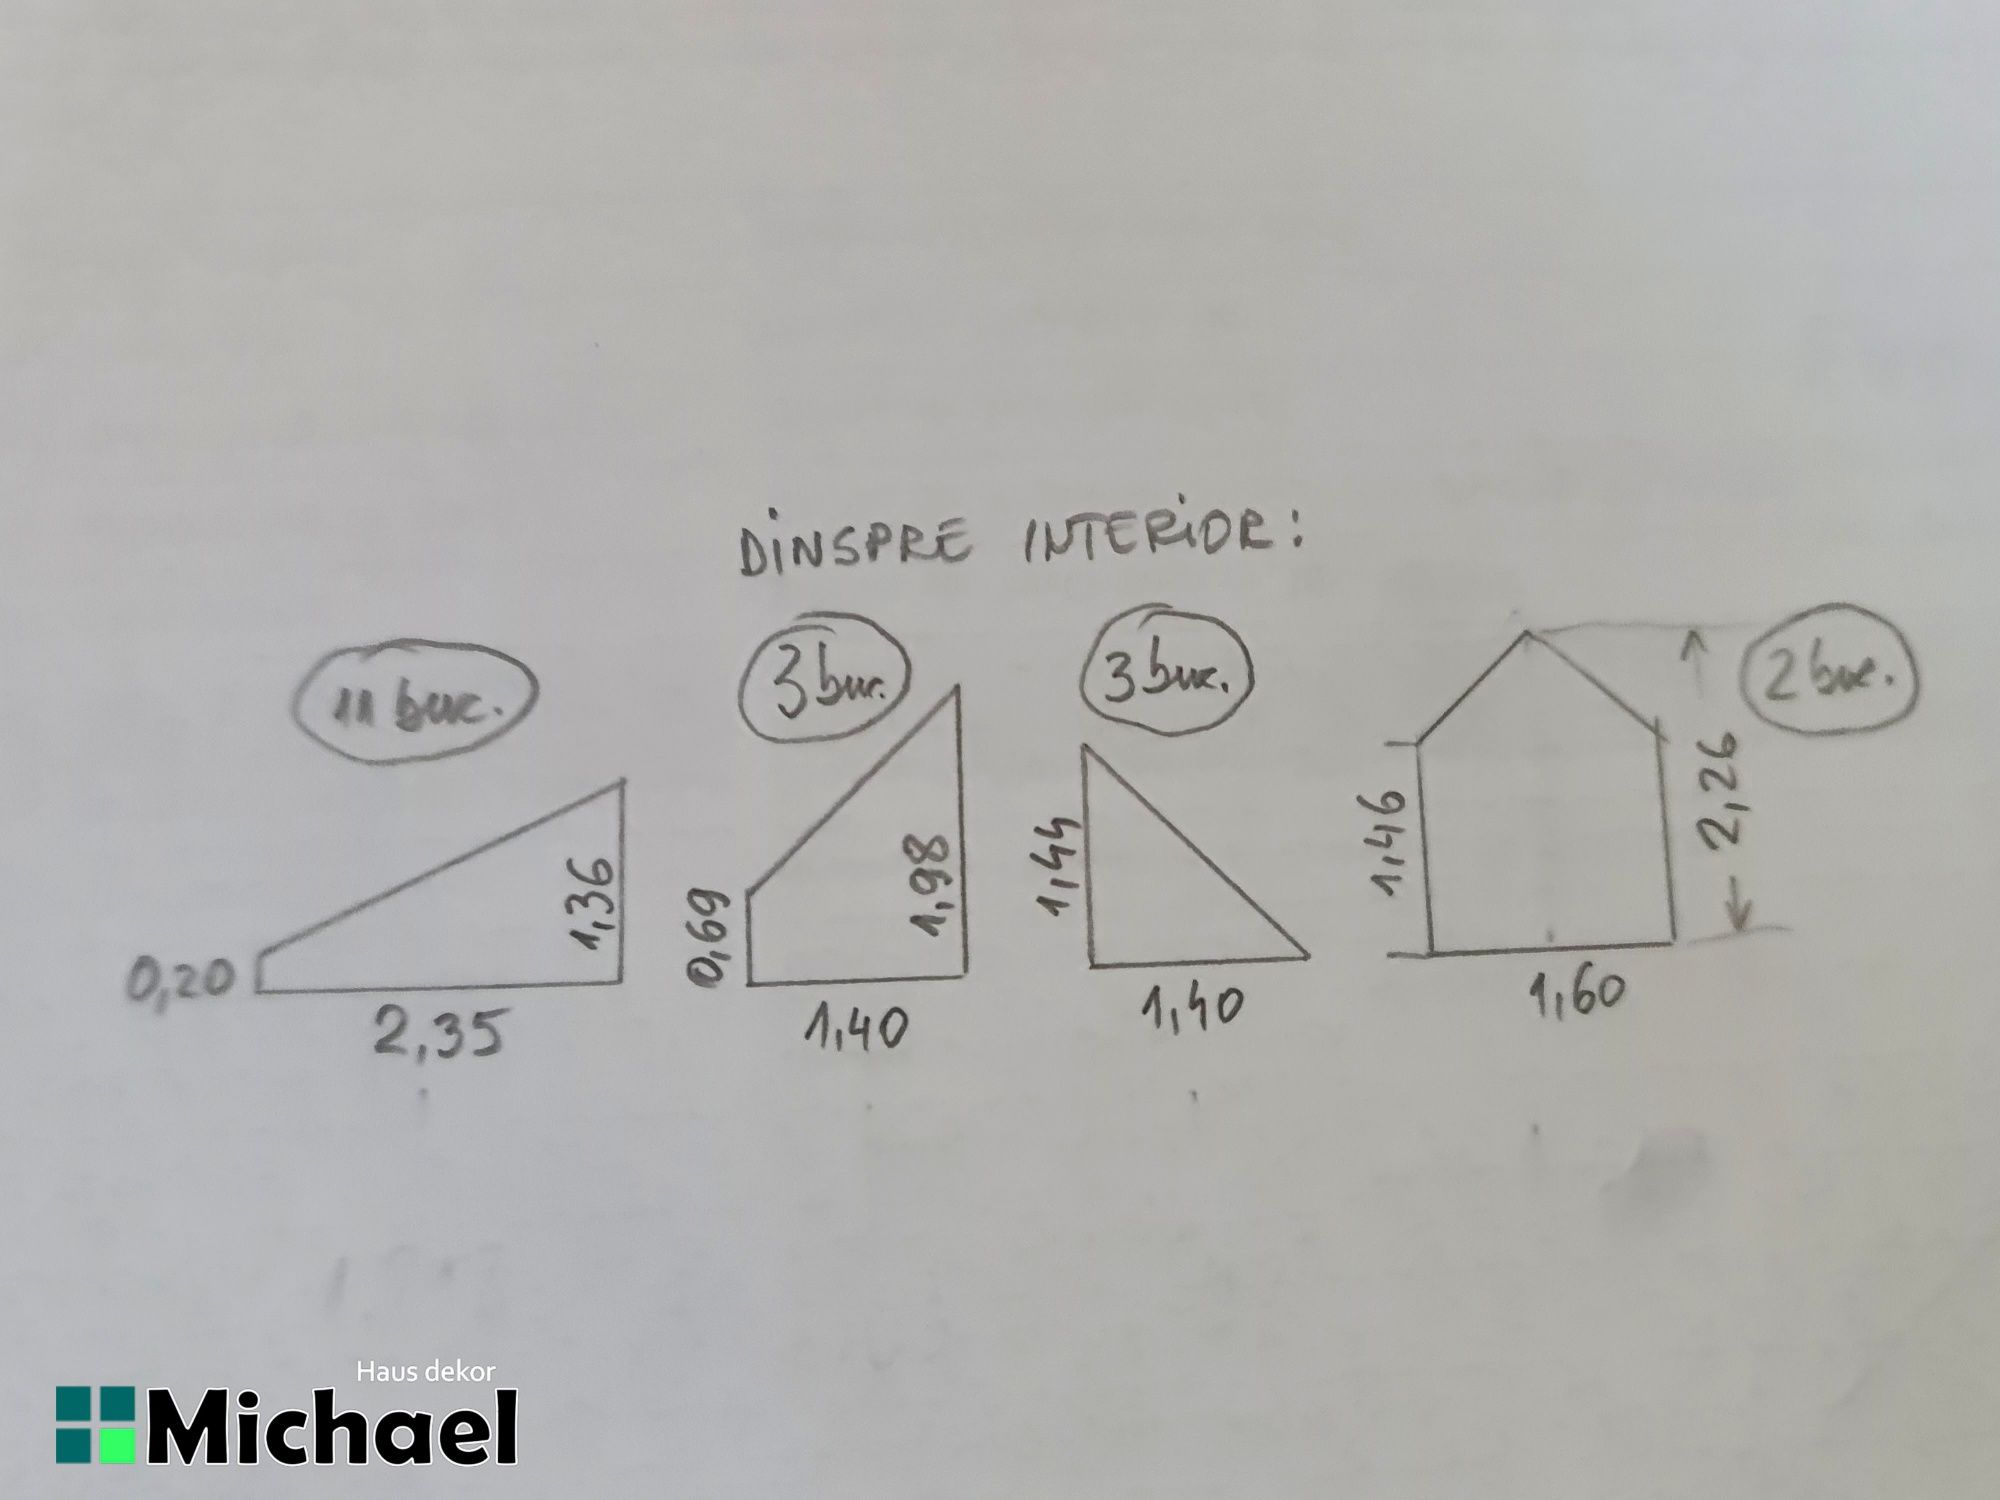 DINSPRE INTERIOR:
11 buc.
3 buc.
3 buc.
2 buc.
0,20
1,36
2,35
0,69
1,98
1,40
1,44
1,40
1,46
2,26
1,60
Haus dekor
Michael